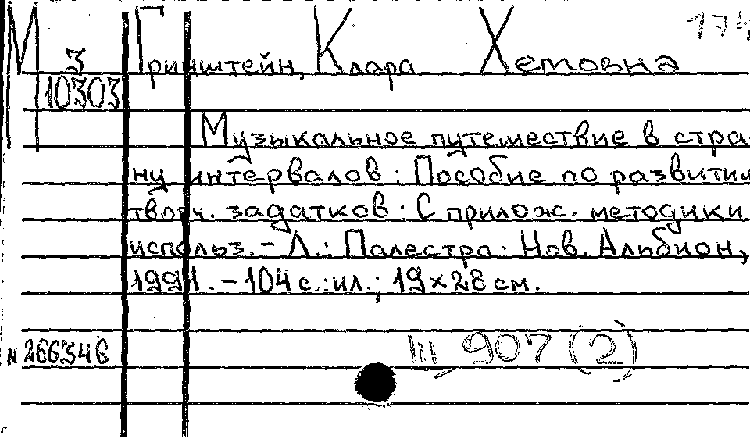 М 3 Гринштейн, Клара Хемовна 174
10303
Музыкальное путешествие в стра-
ну интервалов: Пособие по развитию
творч. задатков: С прилож. методики
использ. - Л.: Палестра: Нов. Альбион,
1991. - 104 с.: ил.; 19×28 см.
№ 266346 III 907 (2)